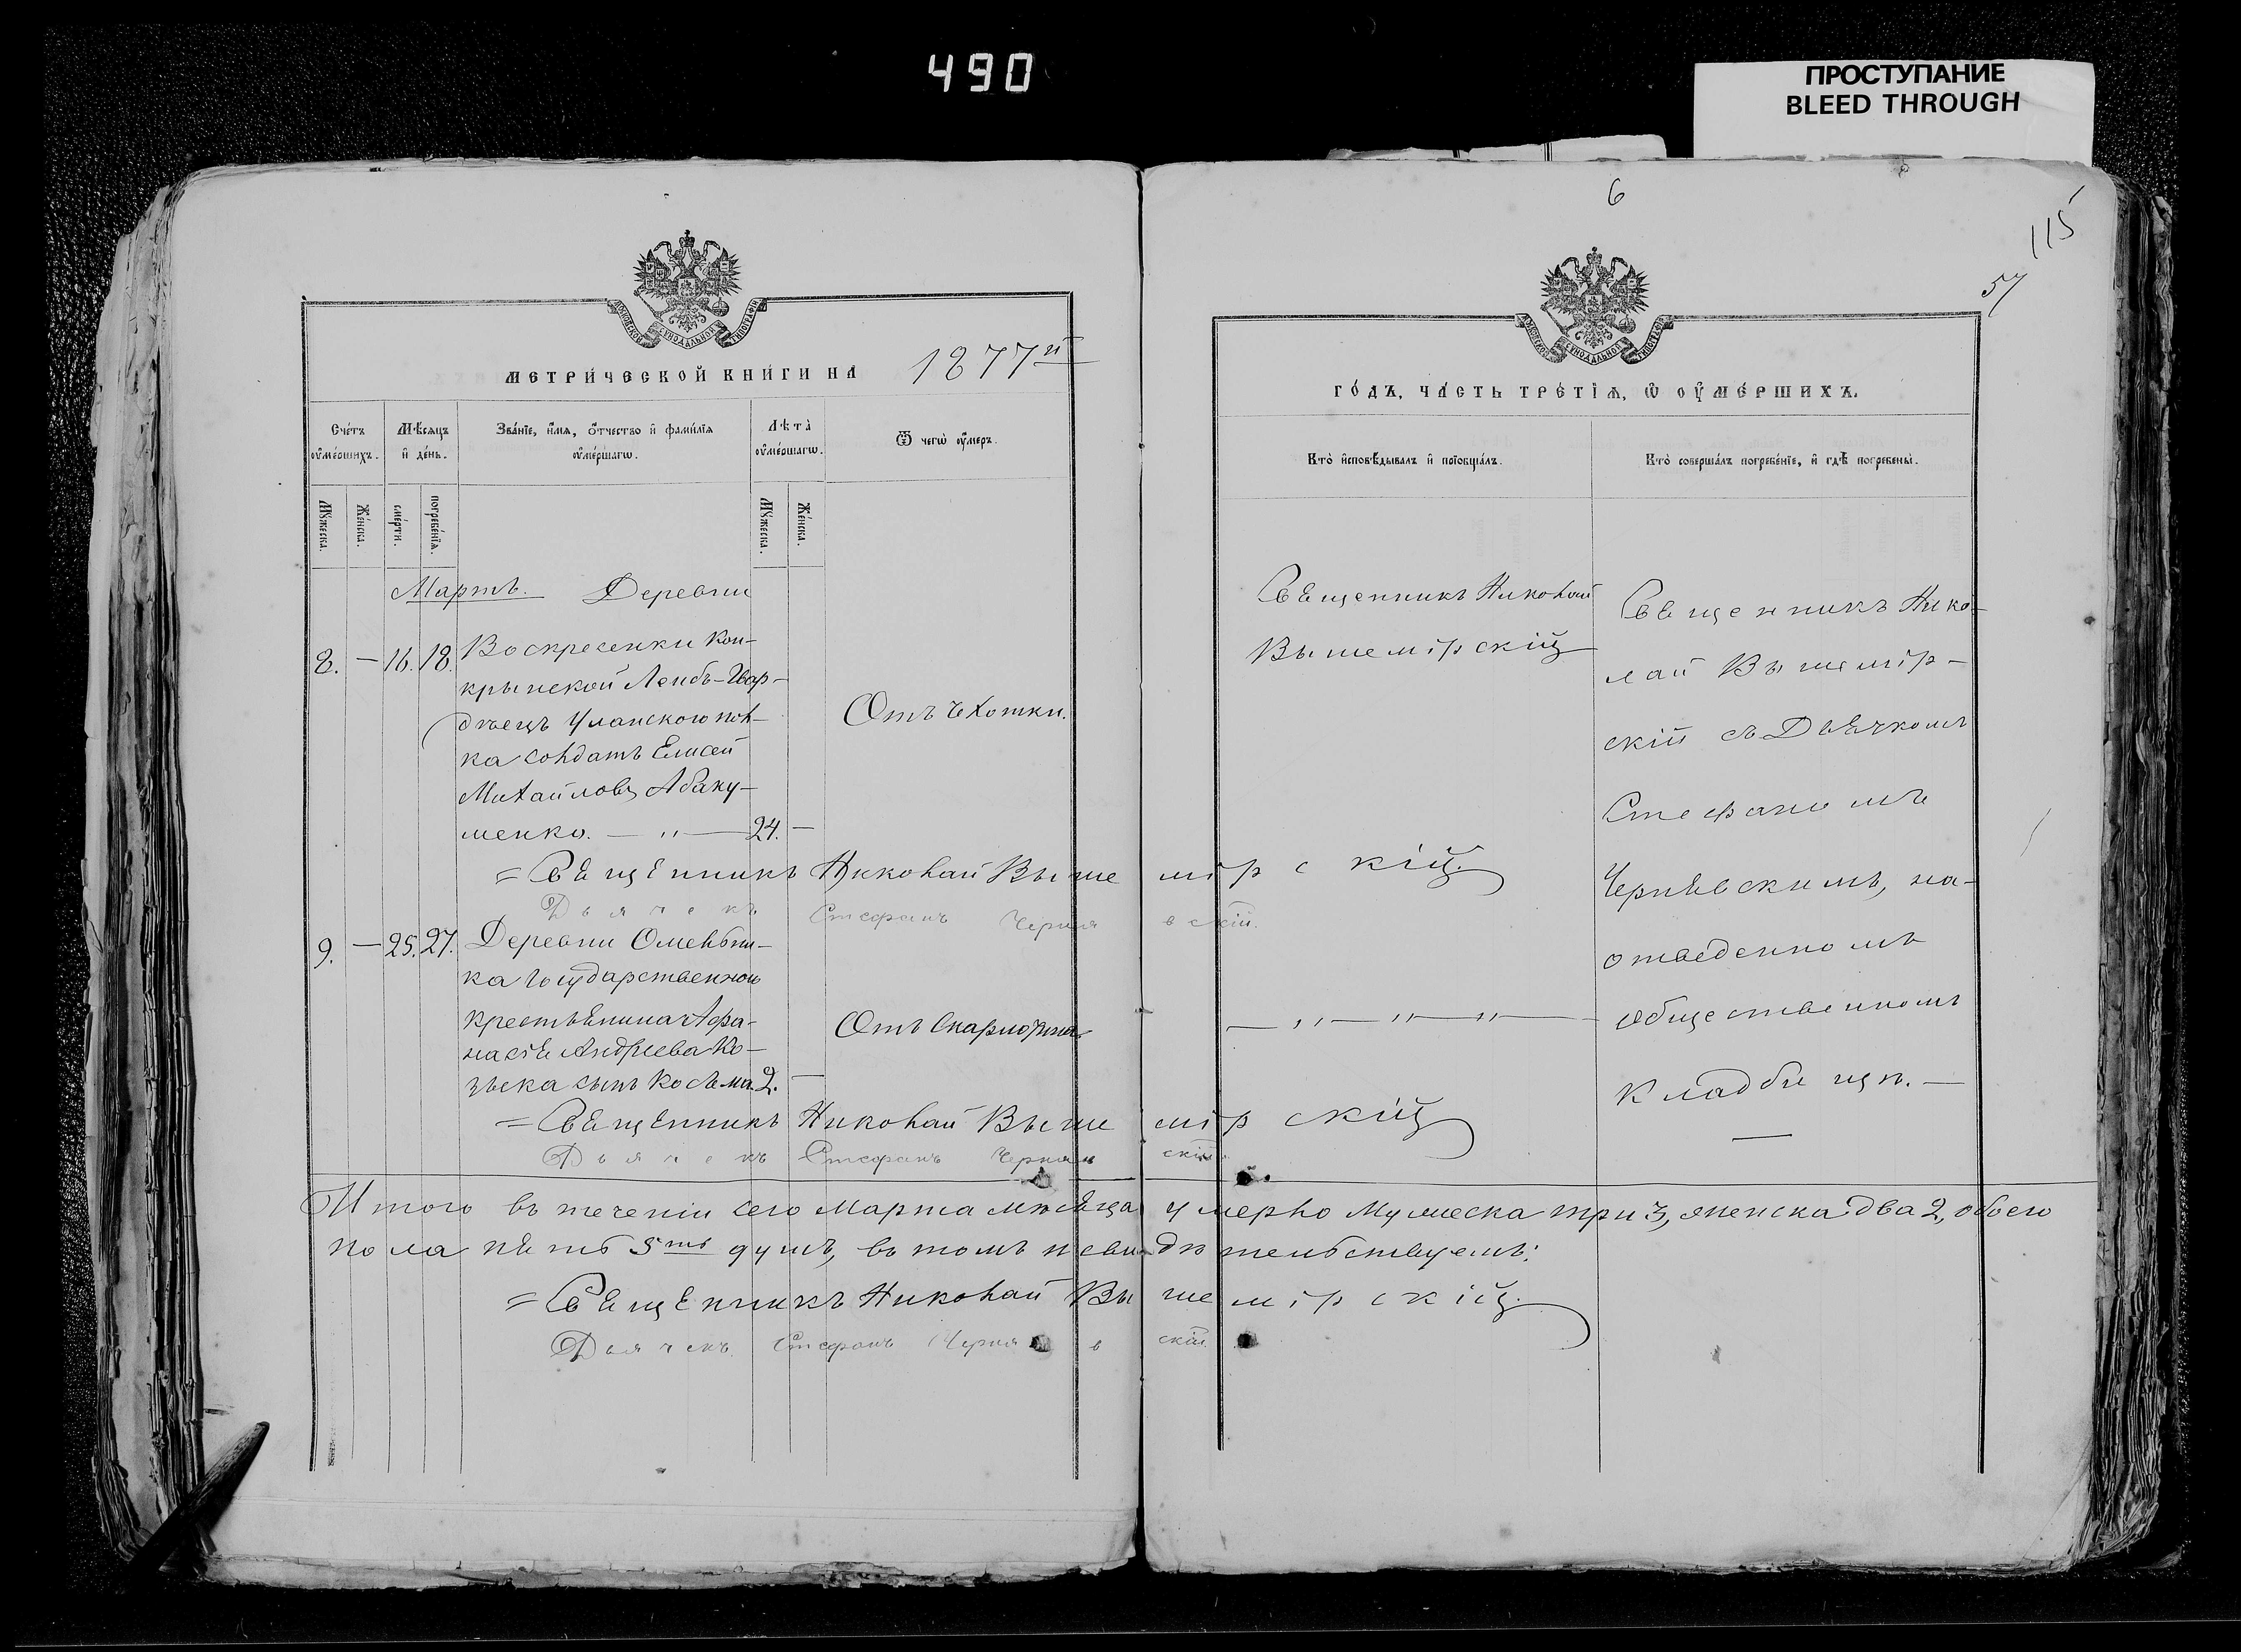 490
ПРОСТУПАНИЕ
BLEED THROUGH
6
115
57
МЕТРИ́ЧЕСКОЙ КНИ́ГИ НА 1877й
ГО́ДЪ, ЧА́СТЬ ТРЕ́ТІѦ, Ѡ ОУ҆МЕ́РШИХЪ.
Сче́тъ оу҆ме́ршихъ.
Мѣсяцъ и҆ де́нь.
Зва́нїе, и҆́мѧ, ѻ҆́тчество и҆ фами́лїѧ оу҆ме́ршагѡ.
Лѣта̀ оу҆ме́ршагѡ.
Ѿ чегѡ̀ оу҆́меръ.
Кто̀ и҆сповѣ́дывалъ и҆ прїобща́лъ.
Кто̀ соверша́лъ погребе́нїе, и҆ гдѣ̀ погребены̀.
Мꙋ́жеска.
Же́нска.
сме́рти.
погребе́нїѧ.
Мꙋ́жеска.
Же́нска.
Мартъ. Деревни
8. — 16. 18. Воскресенки Кон-
крынской Лейбъ-Гвар-
дѣецъ Уланского пол-
ка солдатъ Елисей
Михайловъ Абаку-
менко. — " — 24. —
Отъ чхотки.
Священникъ Николай
Вышемірскій
Священникъ Нико-
лай Вышемір-
скій съ Дьячкомъ
Стефаномъ
Чернявскимъ, на-
отведенномъ
общественномъ
кладбищѣ. —
= Священникъ Николай Вышемірскій.
Дьячекъ Стефанъ Чернявскій.
9. — 25. 27. Деревни Омельни-
ка Государственного
крестьянина Афа-
насія Андреева Ко-
зъека сынъ Косьма 2. —
Отъ Скарлотина
— " — " — " —
= Священникъ Николай Вышемірскій
Дьячекъ Стефанъ Чернявскій
Итого въ теченіи сего Марта мѣсяца умерло Мужеска три 3, женска два 2, обоего
пола пять 5ть душъ, въ томъ и свидѣтельствуемъ:
= Священникъ Николай Вышемірскій.
Дьячекъ Стефанъ Чернявскій.